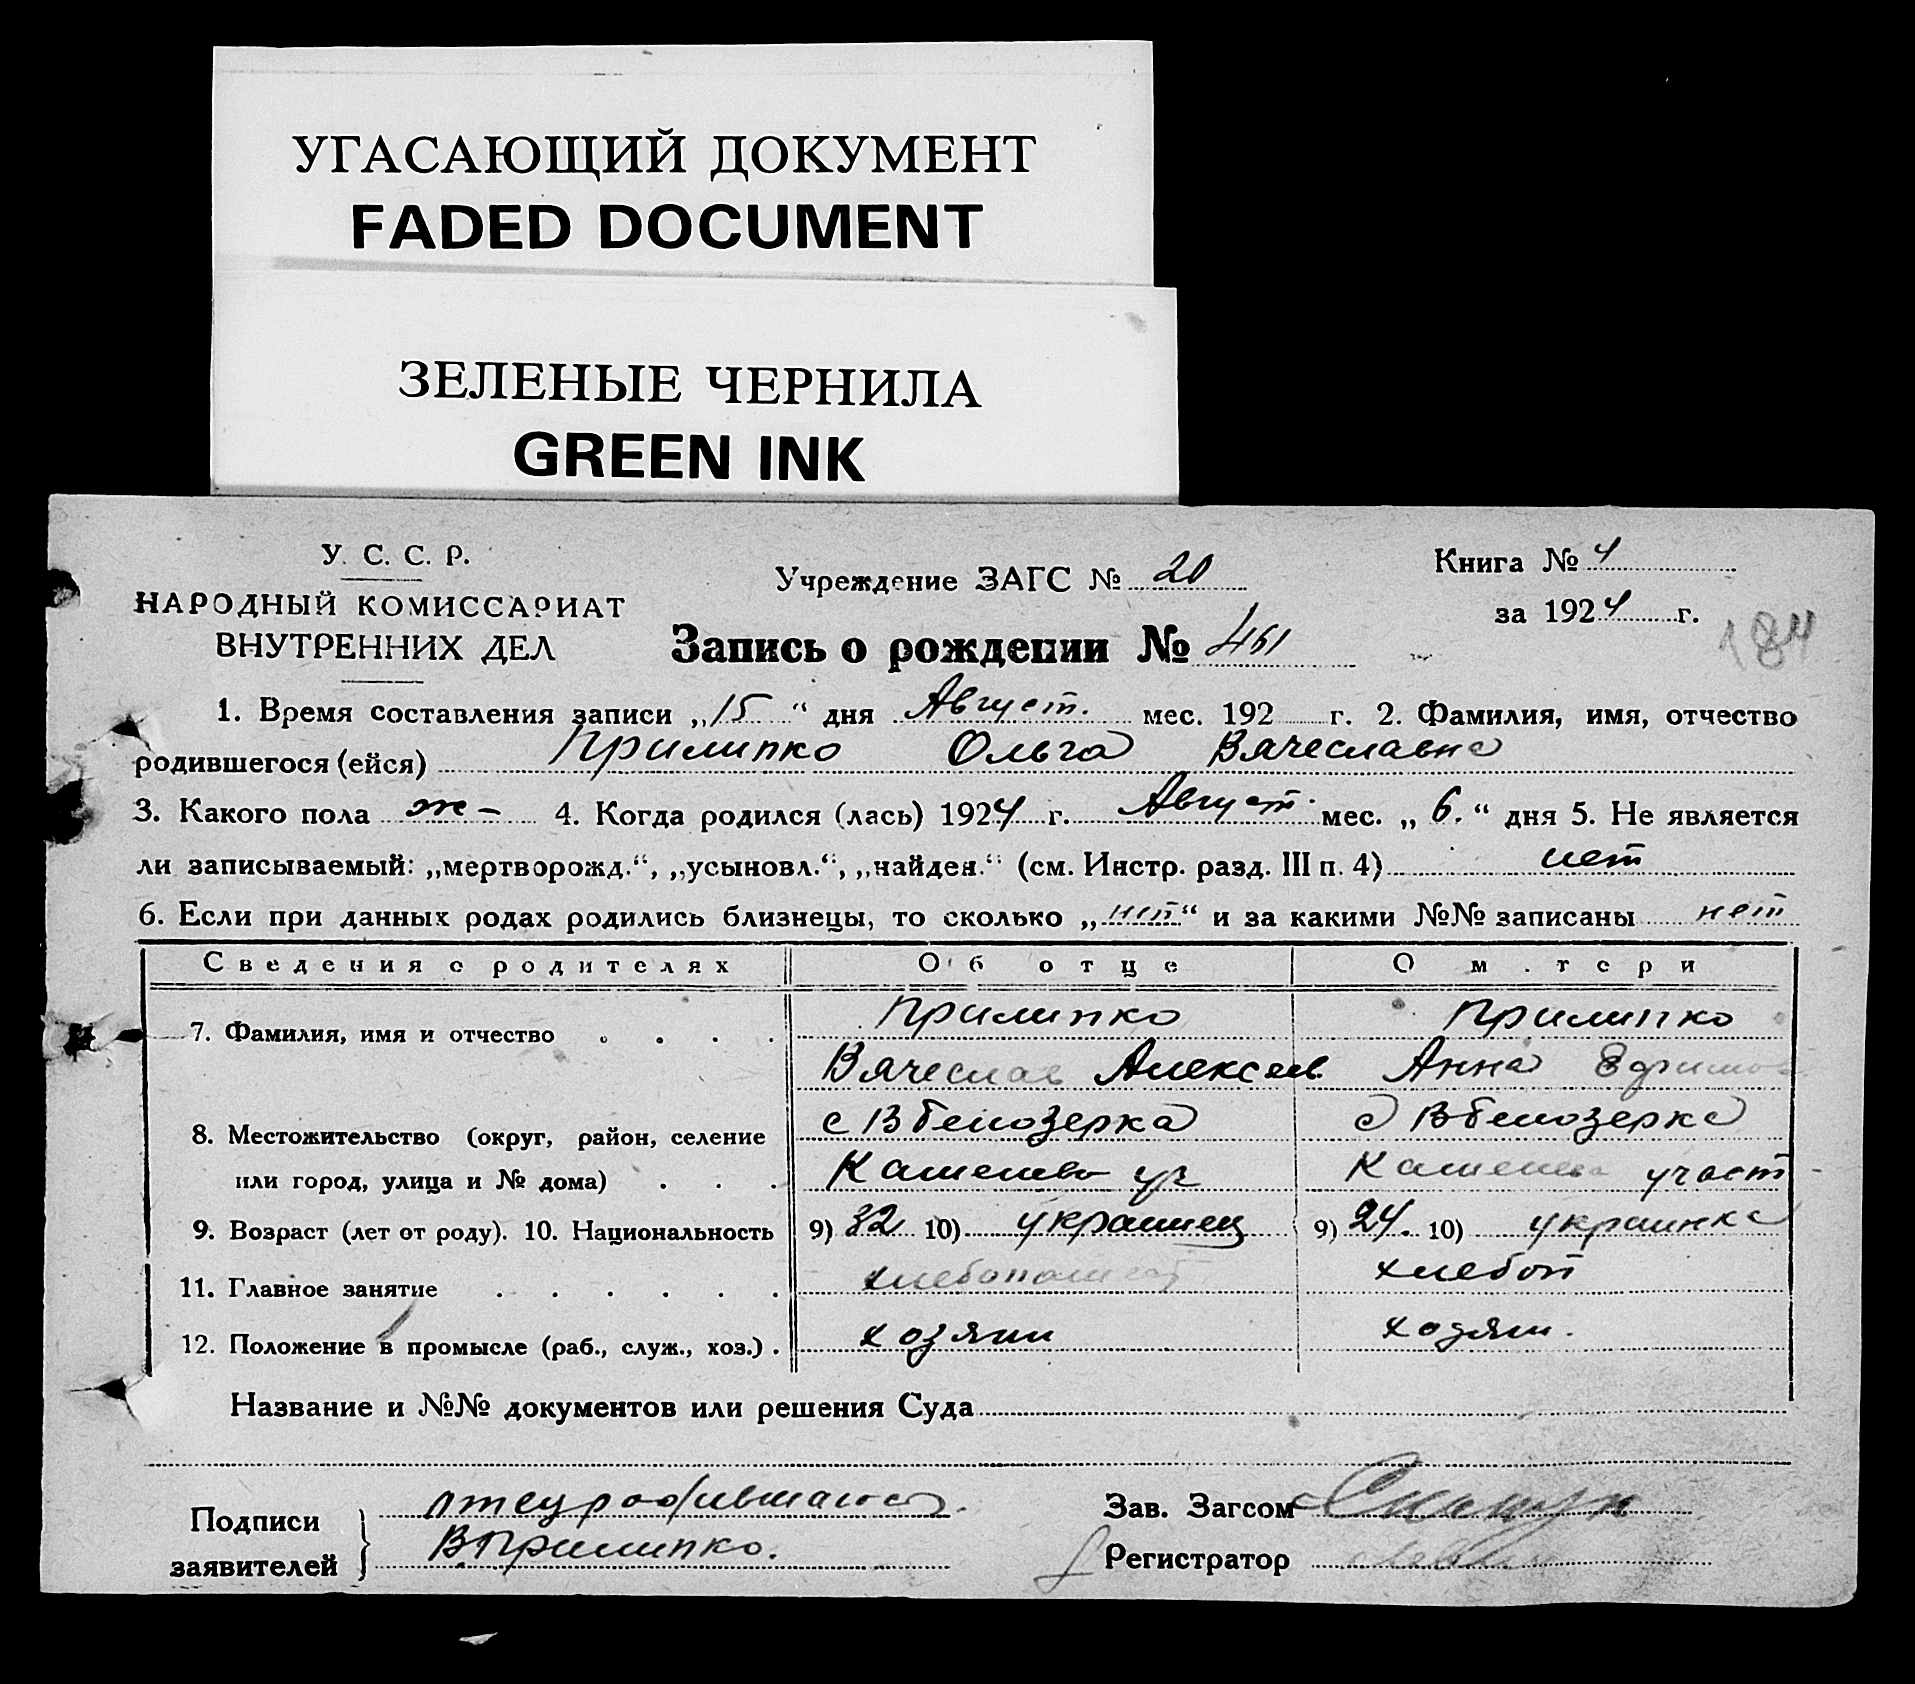 УГАСАЮЩИЙ ДОКУМЕНТ
FADED DOCUMENT
ЗЕЛЕНЫЕ ЧЕРНИЛА
GREEN INK
У. С. С. Р.
НАРОДНЫЙ КОМИССАРИАТ
ВНУТРЕННИХ ДЕЛ
Учреждение ЗАГС № 20
Запись о рождении № 461
Книга № 4
за 1924 г.
184
1. Время составления записи „15“ дня Август. мес. 192 г. 2. Фамилия, имя, отчество
родившегося (ейся) Прилипко Ольга Вячеславна
3. Какого пола ж – 4. Когда родился (лась) 1924 г. Август. мес. „6.“ дня 5. Не является
ли записываемый: „мертворожд.“, „усыновл.“, „найден.“ (см. Инстр. разд. III п. 4) нет
6. Если при данных родах родились близнецы, то сколько „нет“ и за какими №№ записаны нет
Сведения о родителях Об отце О м.тери
7. Фамилия, имя и отчество Прилипко Прилипко
Вячеслав Алексеев. Анна Ефимов
8. Местожительство (округ, район, селение с В Белозерка с В Белозерка
или город, улица и № дома) уч участ
9. Возраст (лет от роду). 10. Национальность 9) 32 10) украинец 9) 24. 10) украинка
11. Главное занятие хлебопашест хлебоп
12. Положение в промысле (раб., служ., хоз.) хозяин хозяин.
Название и №№ документов или решения Суда
Подписи
заявителей
В.Прилипко.
Зав. Загсом
Регистратор